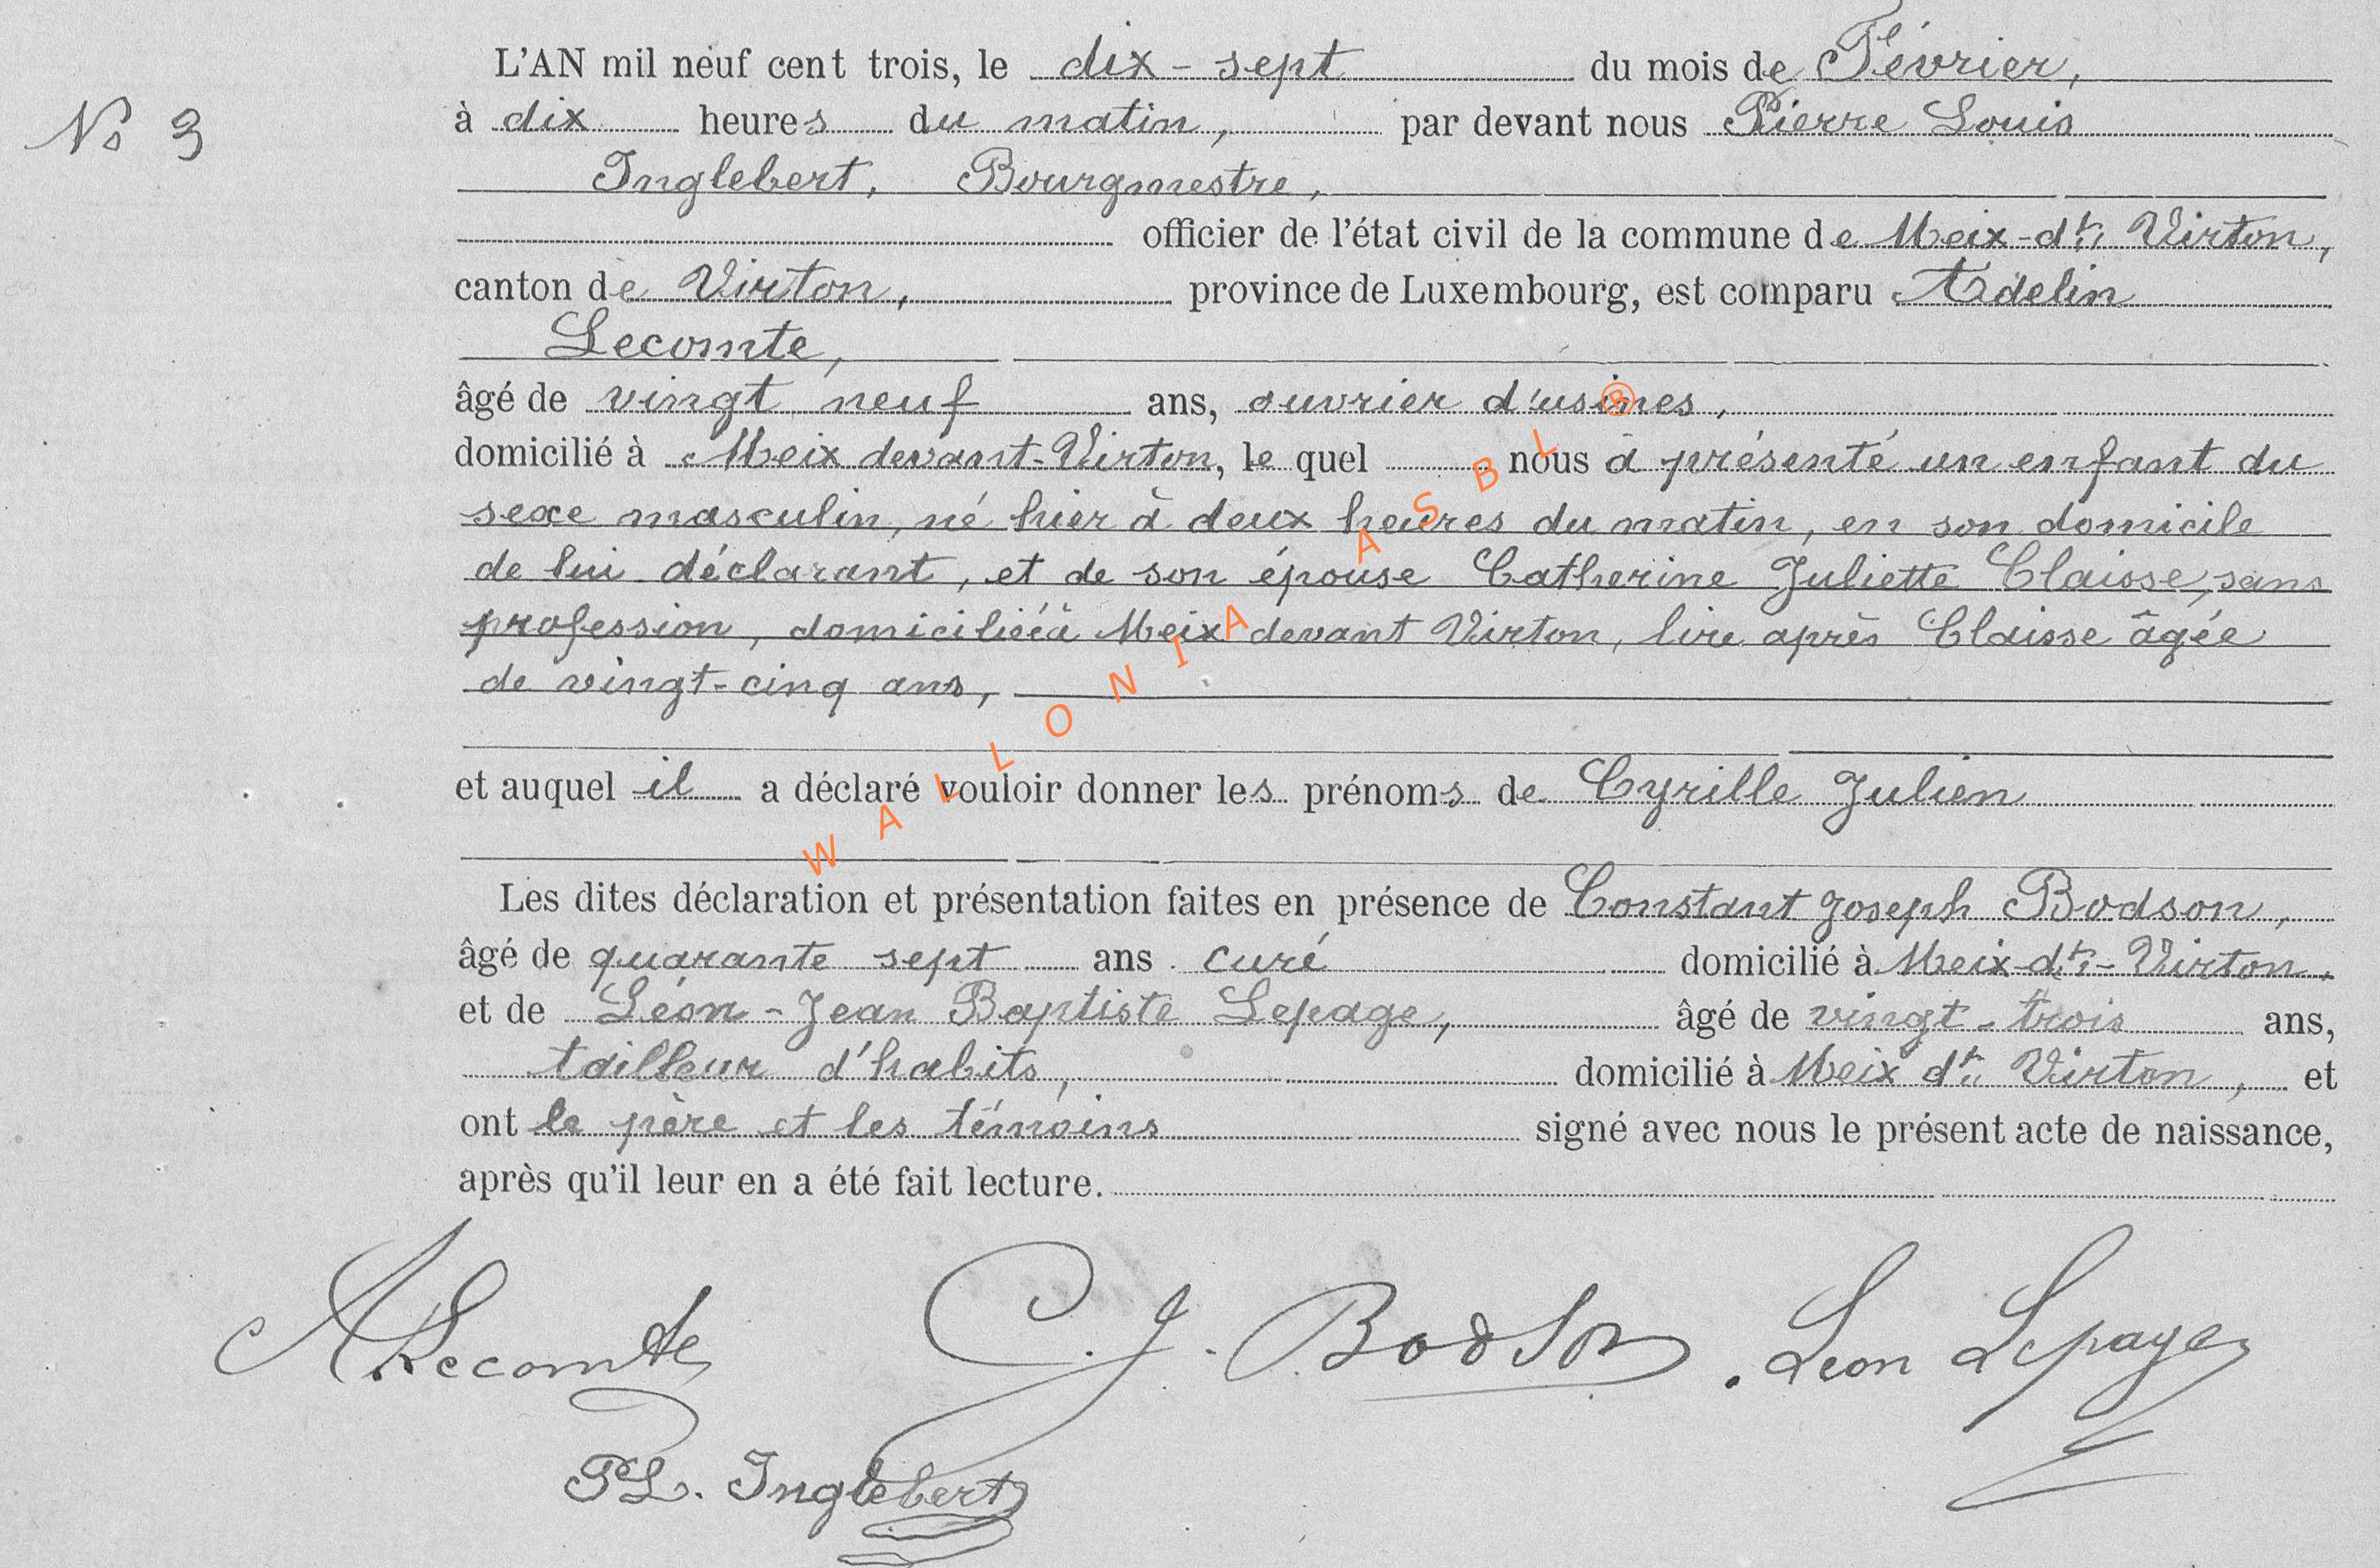 L'AN mil neuf cent trois, le dix-sept du mois de Février,
No 3
à dix heures du matin, par devant nous Pierre Louis
Inglebert, Bourgmestre,
officier de l'état civil de la commune de Meix-dt Virton,
canton de Virton, province de Luxembourg, est comparu Adelin
Lecomte,
âgé de vingt neuf ans, ouvrier d'usines,
domicilié à Meix devant-Virton, le quel nous a présenté un enfant du
sexe masculin, né hier à deux heures du matin, en son domicile
de lui déclarant, et de son épouse Catherine Juliette Claisse, sans
profession, domiciliée à Meix devant Virton, lire après Claisse âgée
de vingt-cinq ans,
et auquel il a déclaré vouloir donner les prénoms de Cyrille Julien
Les dites déclaration et présentation faites en présence de Constant Joseph Bodson,
âgé de quarante sept ans curé domicilié à Meix-dt-Virton,
et de Léon-Jean Baptiste Lepage, âgé de vingt-trois ans,
tailleur d'habits, domicilié à Meix dt Virton, et
ont le père et les témoins signé avec nous le présent acte de naissance,
après qu'il leur en a été fait lecture.
A Lecomte C. J. Bodson. Léon Lepage
PL. Inglebert
WALLONIA ASBL ®